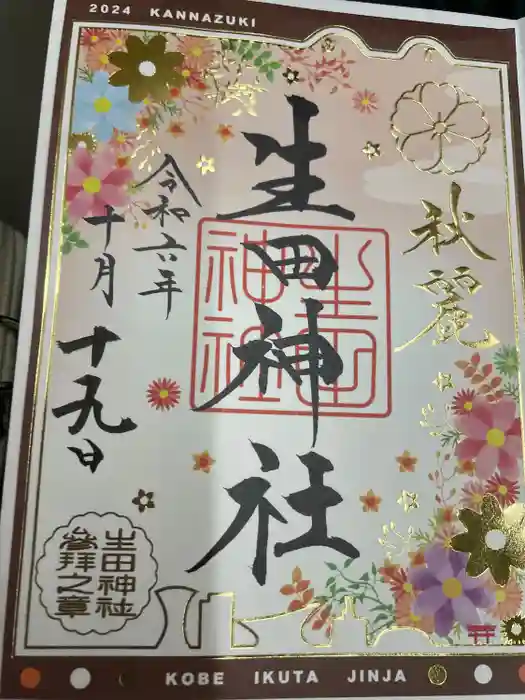 2024 KANNAZUKI
秋麗
生田神社
生田神社
令和六年
十月
十九日
生田神社
參拜之章
KOBE IKUTA JINJA